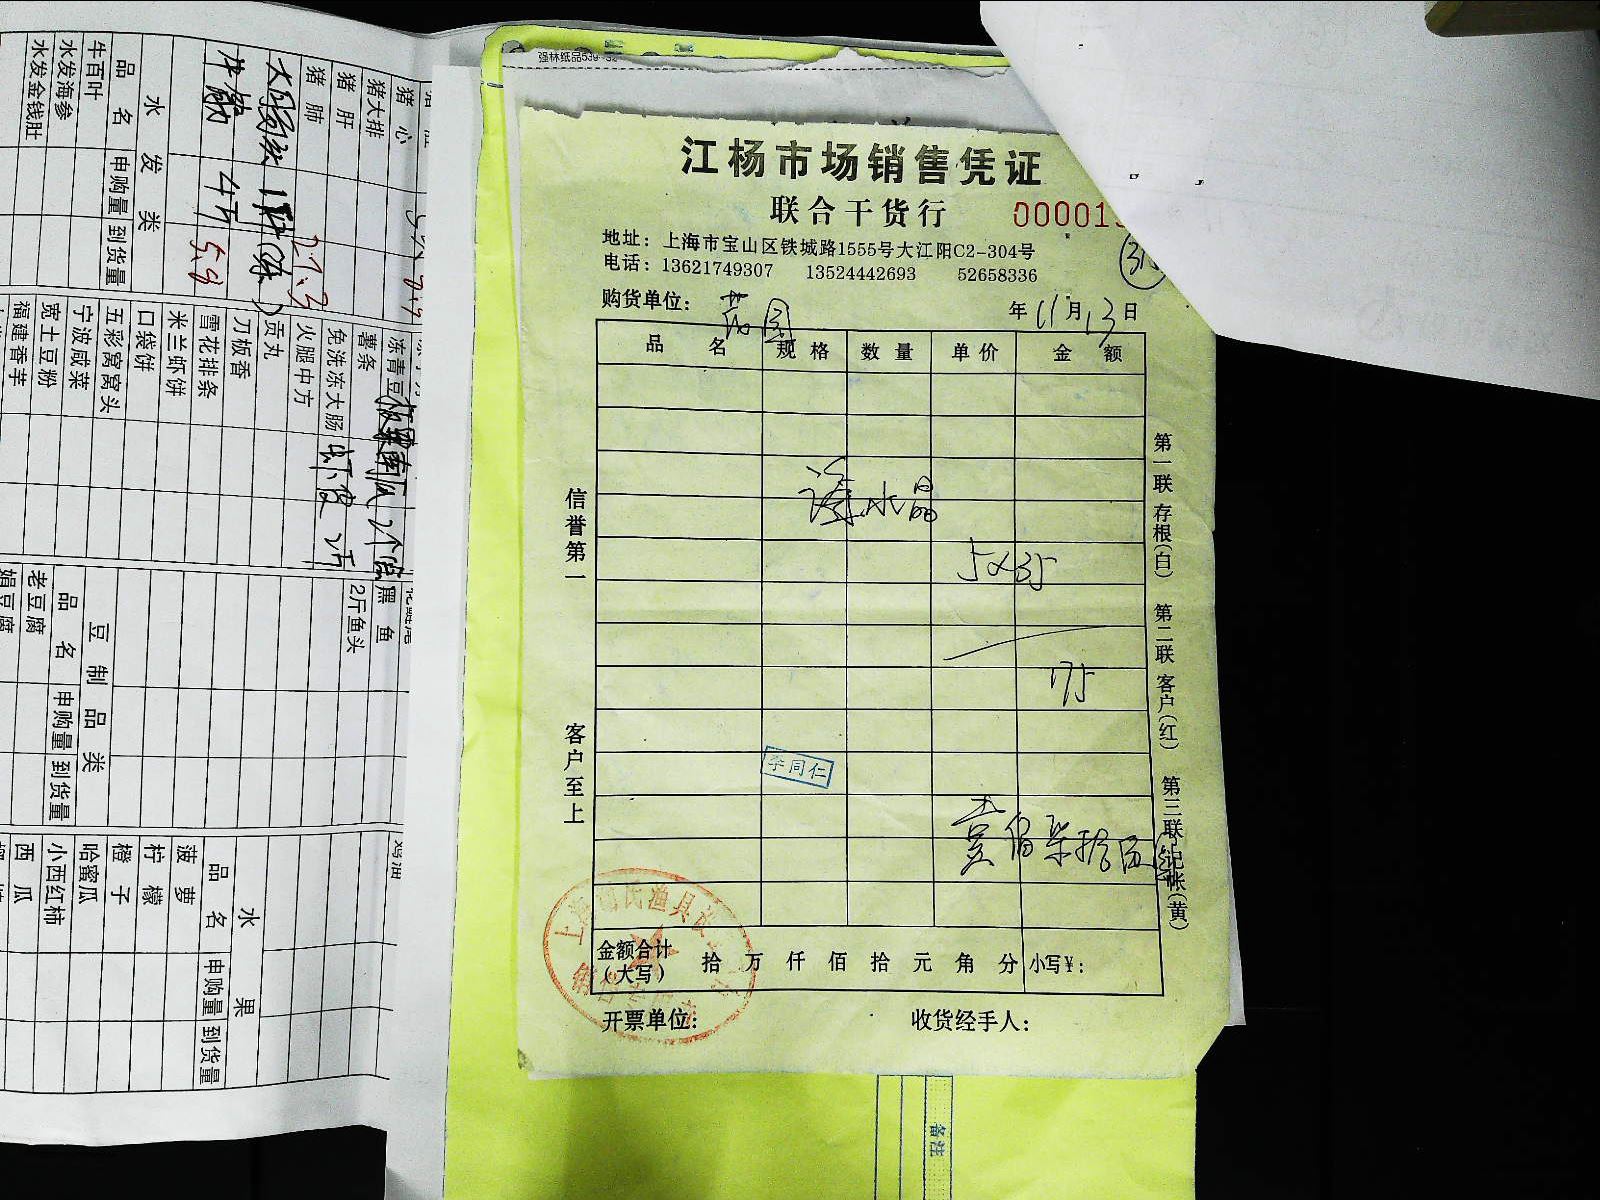 强林纸品539-32
江杨市场销售凭证
联合干货行
00001
地址：上海市宝山区铁城路1555号大江阳C2-304号
电话：13621749307 13524442693 52658336
购货单位：
年 11 月 13 日
品 名 规 格 数 量 单 价 金 额
水晶
5×35
175
李同仁
壹佰柒拾伍
金额合计(大写) 拾 万 仟 佰 拾 元 角 分 小写￥：
开票单位： 收货经手人：
信誉第一 客户至上
第一联 存根(白) 第二联 客户(红) 第三联 记帐(黄)
备注
猪 心
猪大排
猪 肝
猪 肺
27.3
4斤 5.8
水 发 类
品 名 申购量 到货量
牛百叶
水发海参
水发金钱肚
冻青豆
薯条
免洗冻大肠
火腿中方
贡丸
刀板香
雪花排条
米兰虾饼
口袋饼
五彩窝窝头
宁波咸菜
宽土豆粉
福建香芋
黑 鱼
2斤鱼头
豆 制 品 类
品 名 申购量 到货量
老豆腐
绢豆腐
鸡油
水 果
品 名 申购量 到货量
菠 萝
柠 檬
橙 子
哈蜜瓜
小西红柿
西 瓜